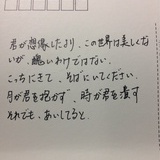 君が想像したより、この世界は美しくな
いが、醜いわけではない。
こっちにきて、そばにいてください。
月が君を抱かず、時が君を潰す
それでも、あいしてると。